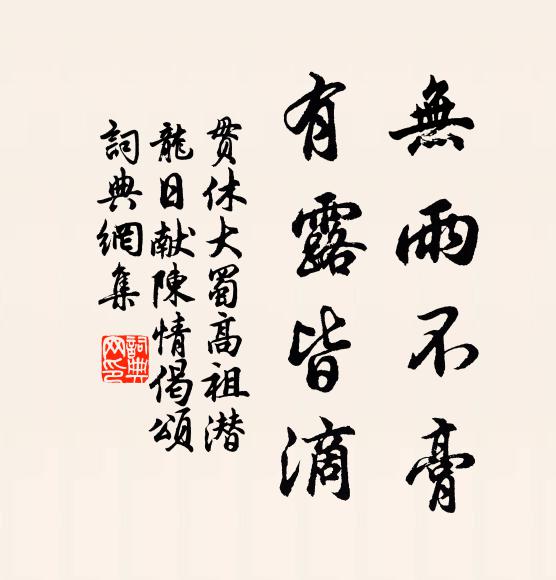 無雨不膏
有露皆滴
貫休大蜀高祖潜
龍日献陳情偈頌
詞典網集
詞典网印